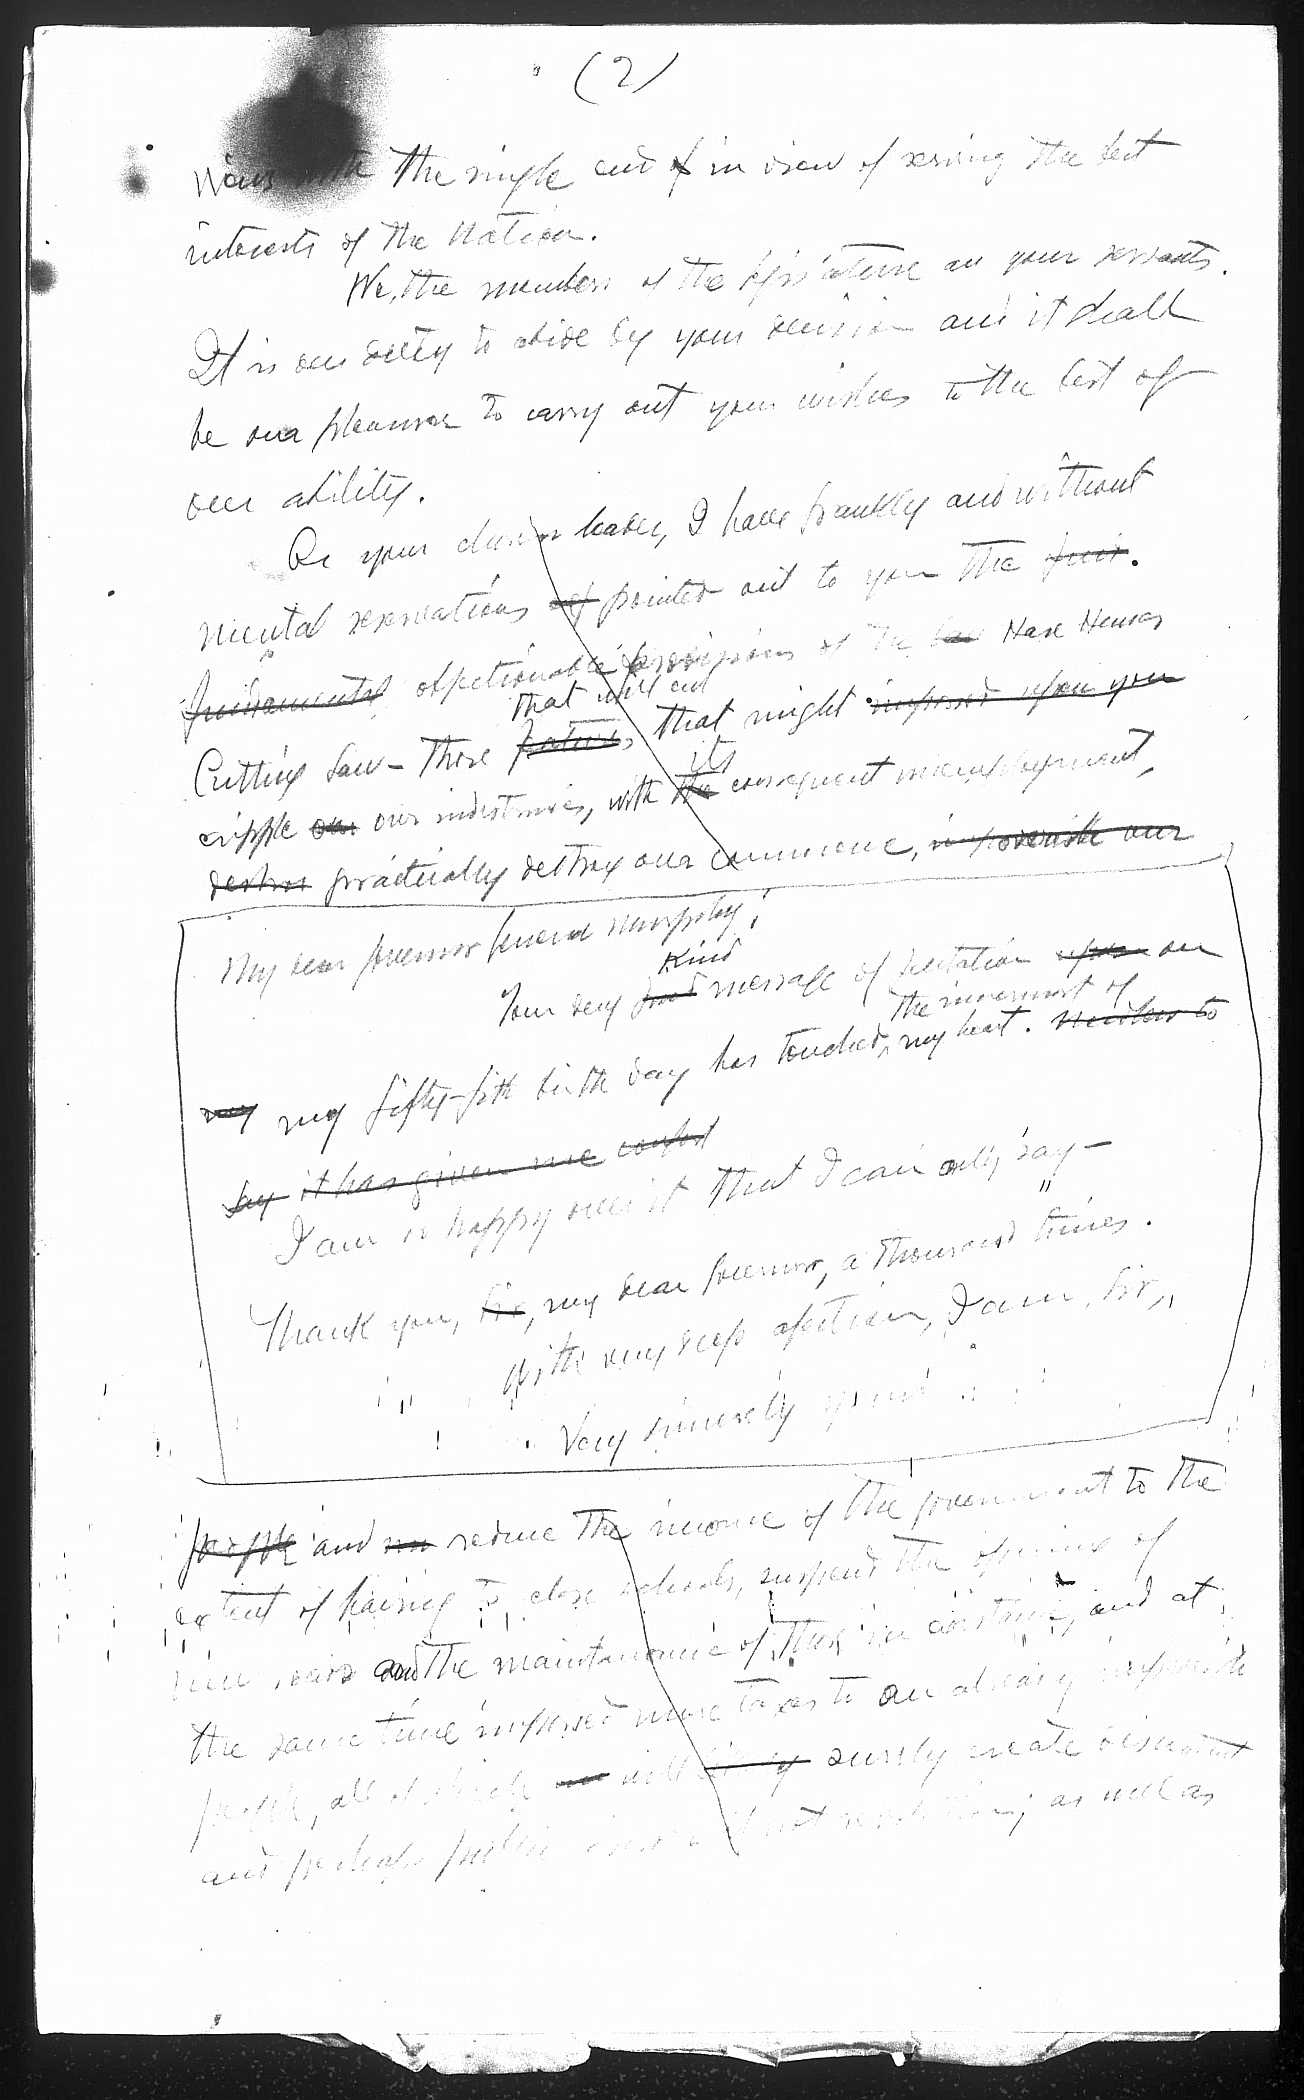 (2)
views with the single end of in view of serving the best
interests of the Nation.
We, the members of the legislature are your servants.
It is our duty to abide by your decision and it shall
be our pleasure to carry out your wishes to the best of
our ability.
As your chosen leader, I have frankly and without
mental reservations pointed out to you the
fundamental objectionable provisions of the Hare Hawes
that will cut
Cutting Law - those features that might imposed upon you
its
cripple our our industries, with the consequent unemployment,
destroy practically destroy our commerce, impoverish our
My dear Governor General Murphy:
kind
Your very message of felicitation upon on
the innermost of
my my fifty-fifth birth day has touched, my heart. Needless to
say it has given me comfort
I am so happy over it that I can only say -
"
Thank you, Sir, my dear Governor, a thousand times.
With very deep affection, I am, Sir,
Very sincerely yours
people and reduce the income of the government to the
extent of having to close schools, suspend the opening of
new roads and the maintenance of those in existence, and at
the same time imposed more taxes to an already impoverished
people, all of which will surely create discontent
and perhaps public as well as